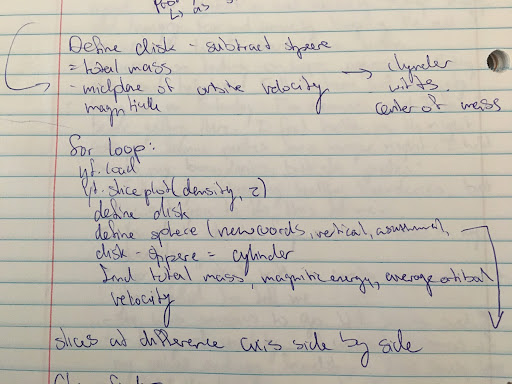 ↳ as
Define disk - subtract sphere
= total mass → clynder
- midplane of orbite velocity w/ its
magnitude center of mass
for loop:
yt.load
yt.sliceplot(density, z)
define disk
define sphere (new words, vertical,
disk - sppere = cylinder
find total mass, magnitic energy, average orbital
velocity
slices at difference axis side by side